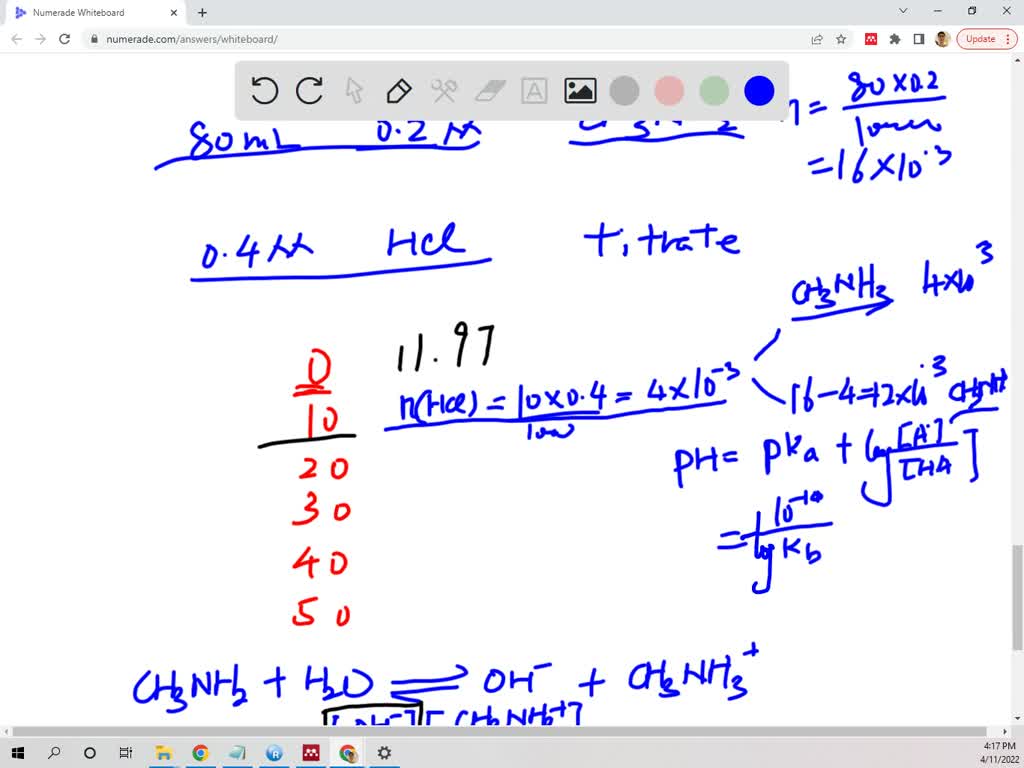 Numerade Whiteboard
numerade.com/answers/whiteboard/
Update
80 mL 0.2 M
= 80 × 0.2
= 16 × 10⁻³
0.4 M HCl titrate
CH3NH3 4×10⁻³
0 11.97
10 n(HCl) = 10×0.4 = 4 × 10⁻³
16-4=12×10⁻³
20
pH = pKa + log [A⁻]/[HA]
30
=
log Kb
40
50
CH3NH2 + H2O ⇌ OH⁻ + CH3NH3⁺
[OH⁻][CH3NH3⁺]
4:17 PM
4/11/2022